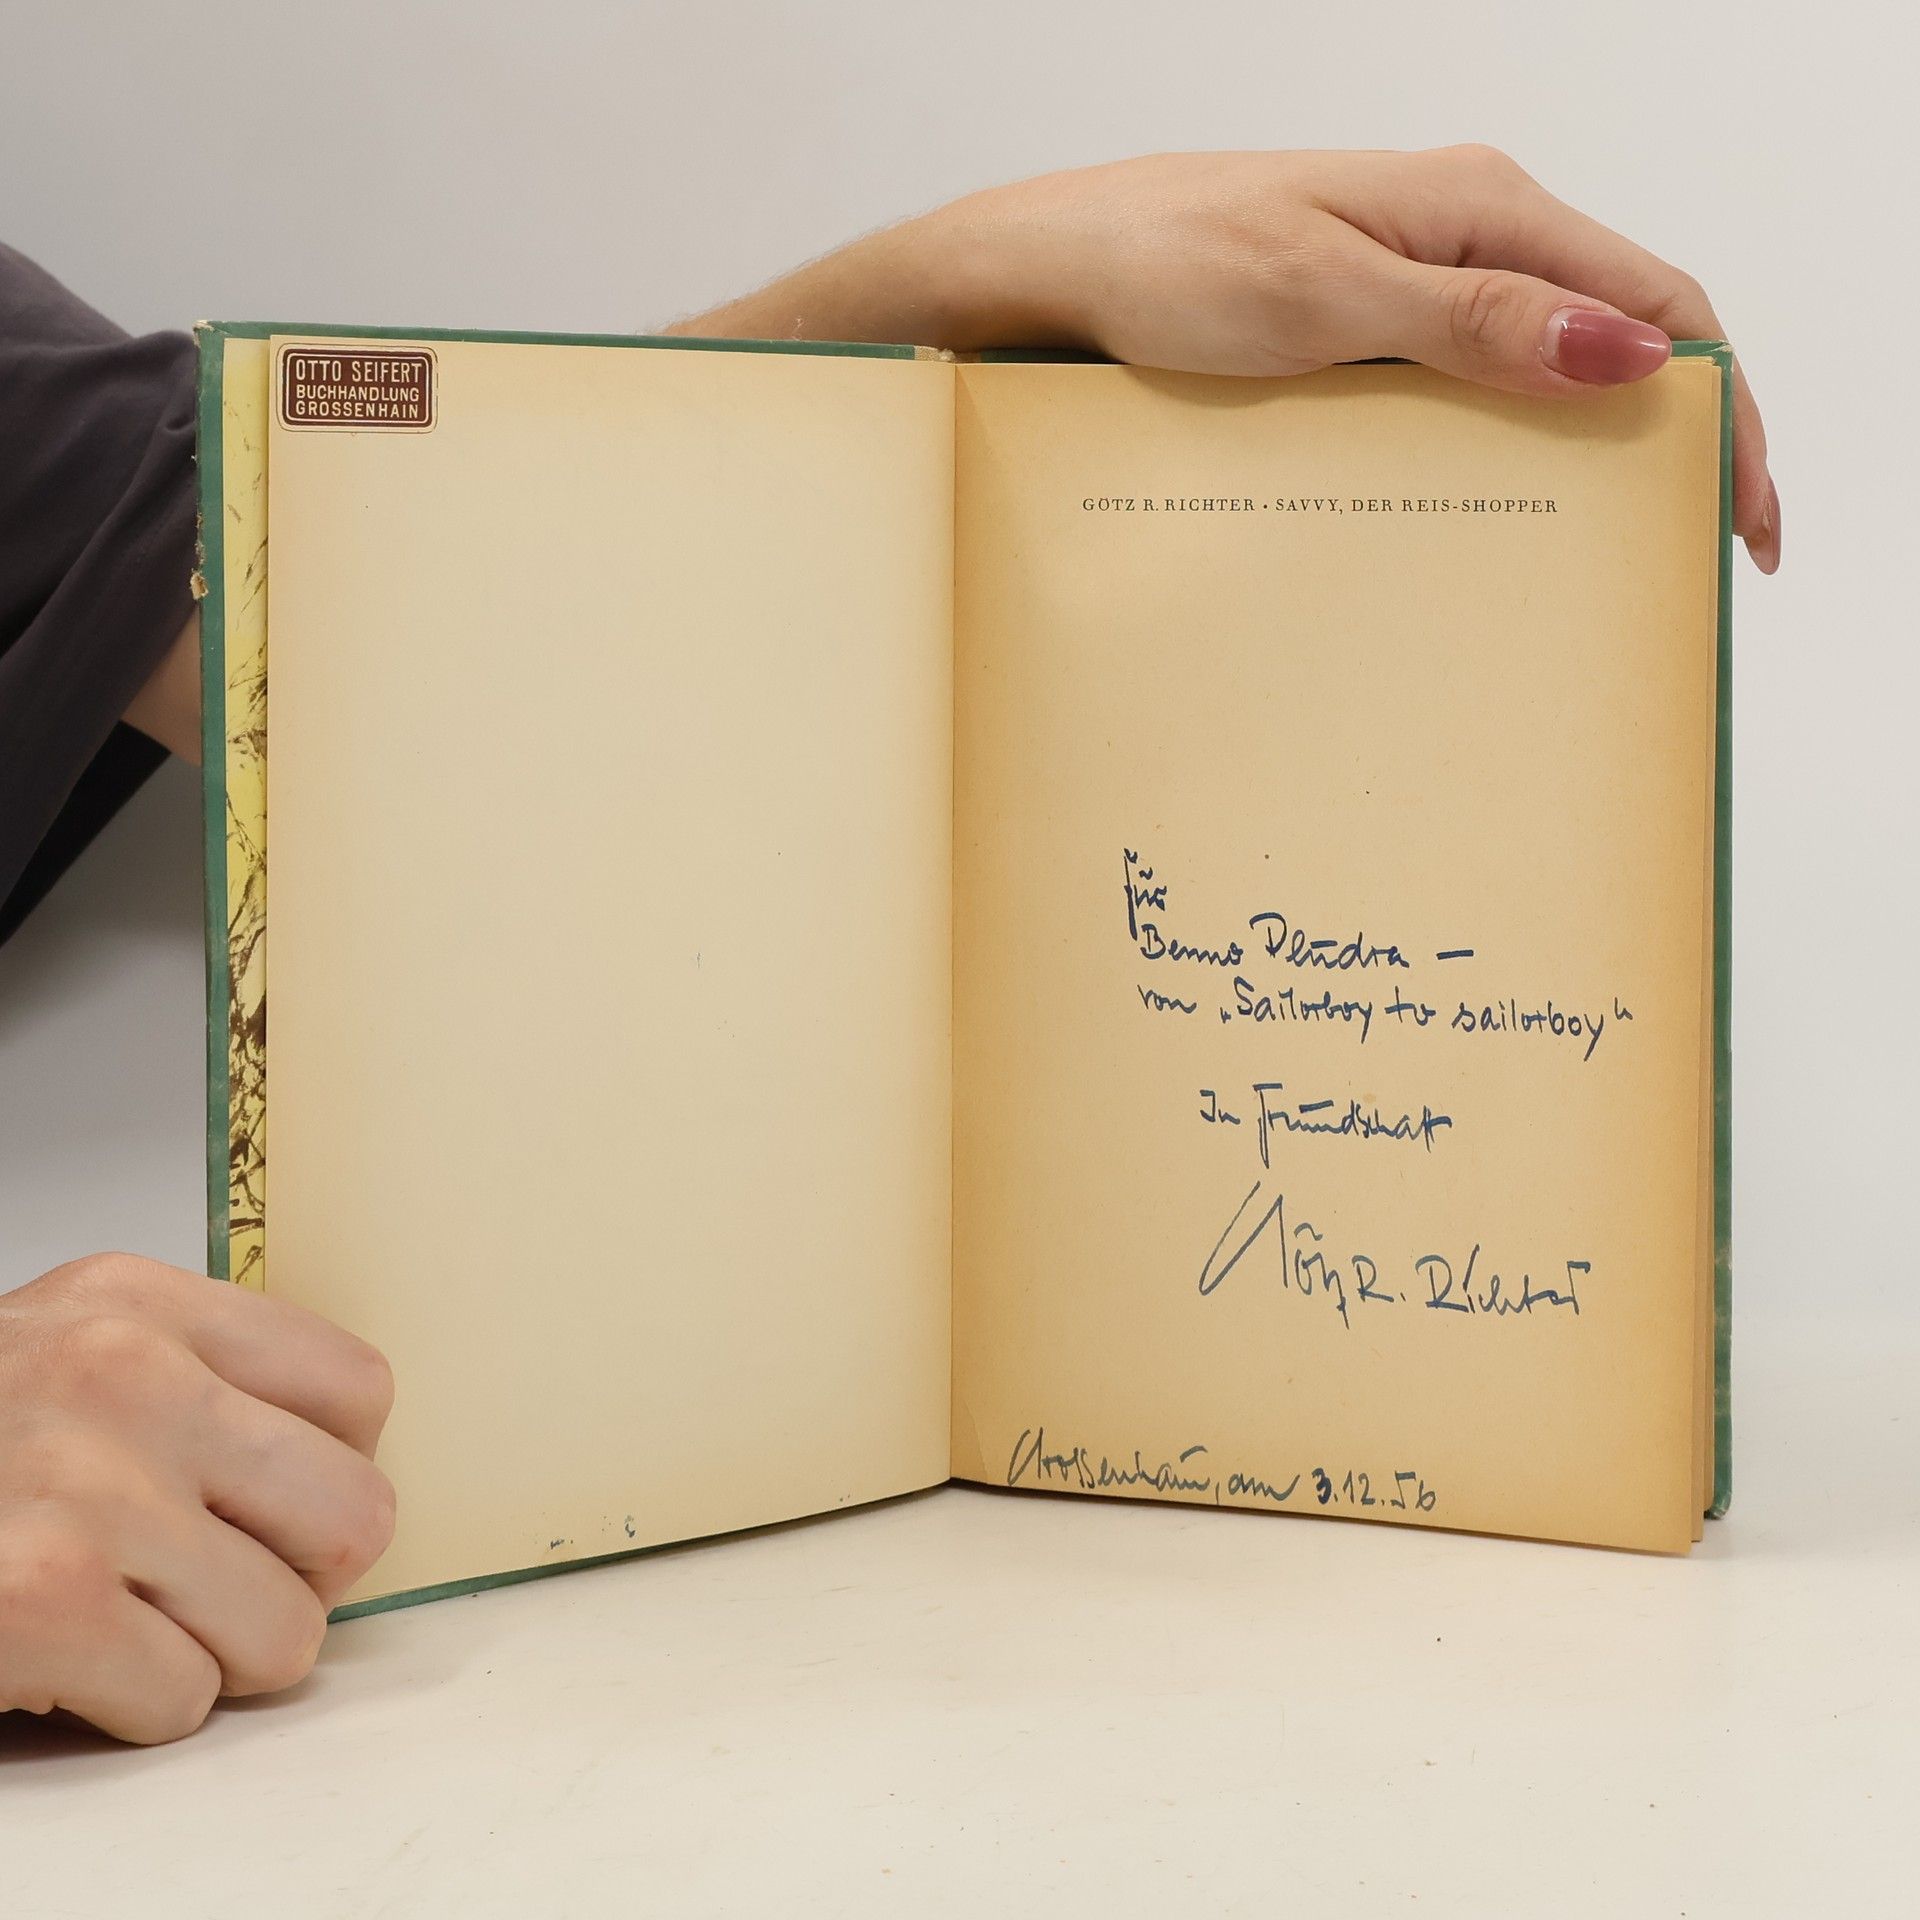 OTTO SEIFERT
BUCHHANDLUNG
GROSSENHAIN
GÖTZ R. RICHTER • SAVVY, DER REIS-SHOPPER
für
Benno Pludra —
von „Sailorboy to sailorboy“
In Freundschaft
Götz R. Richter
Großenhain, am 3.12.56